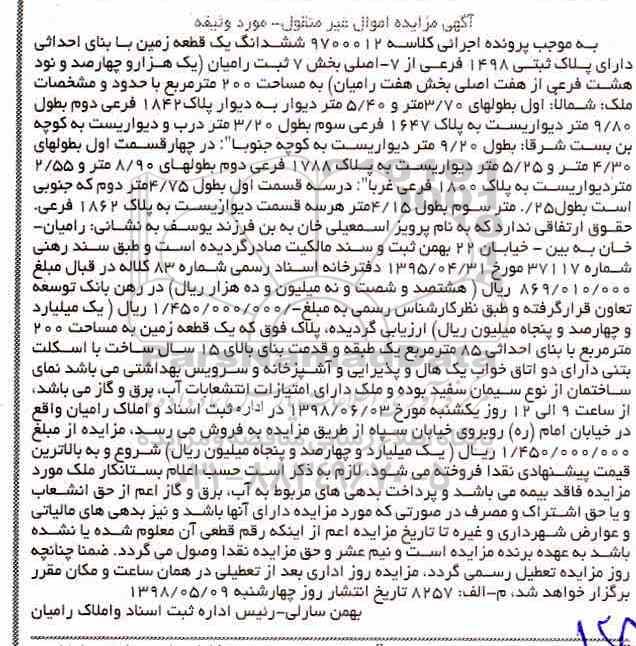 آگهی مزایده اموال غیر منقول- مورد وثیقه
به موجب پرونده اجرائی کلاسه ۹۷۰۰۰۱۲ ششدانگ یک قطعه زمین با بنای احداثی
دارای پلاک ثبتی ۱۴۹۸ فرعی از ۷-اصلی بخش ۷ ثبت رامیان (یک هزارو چهارصد و نود
هشت فرعی از هفت اصلی بخش هفت رامیان) به مساحت ۲۰۰ مترمربع با حدود و مشخصات
ملک: شمالاً: اول بطولهای ۳/۷۰متر و ۵/۴۰ متر دیوار به دیوار پلاک۱۸۴۲ فرعی دوم بطول
۹/۸۰ متر دیواریست به پلاک ۱۶۴۷ فرعی سوم بطول ۳/۲۰ متر درب و دیواریست به کوچه
بن بست شرقا: بطول ۹/۲۰ متر دیواریست به کوچه جنوبا": در چهارقسمت اول بطولهای
۴/۳۰ متر و ۵/۲۵ متر دیواریست به پلاک ۱۷۸۸ فرعی دوم بطولهای ۸/۹۰ متر و ۲/۵۵
متردیواریست به پلاک ۱۸۰۰ فرعی غربا": درسه قسمت اول بطول ۴/۷۵متر دوم که جنوبی
است بطول۲۵/. متر سوم بطول ۴/۱۵متر هرسه قسمت دیواریست به پلاک ۱۸۶۲ فرعی.
حقوق ارتفاقی ندارد که به نام پرویز اسمعیلی خان به بن فرزند یوسف به نشانی: رامیان-
خان به بین - خیابان ۲۲ بهمن ثبت و سند مالکیت صادرگردیده است و طبق سند رهنی
شماره ۳۷۱۱۷ مورخ ۱۳۹۵/۰۴/۳۱ دفترخانه اسناد رسمی شماره ۸۳ کلاله در قبال مبلغ
۸۶۹/۰۱۰/۰۰۰ ریال ( هشتصد و شصت و نه میلیون و ده هزار ریال) در رهن بانک توسعه
تعاون قرارگرفته و طبق نظرکارشناس رسمی به مبلغ-/۱/۴۵۰/۰۰۰/۰۰۰ ریال ( یک میلیارد
و چهارصد و پنجاه میلیون ریال) ارزیابی گردیده، پلاک فوق که یک قطعه زمین به مساحت ۲۰۰
مترمربع با بنای احداثی ۸۵ مترمربع یک طبقه و قدمت بنای بالای ۱۵ سال ساخت با اسکلت
بتنی دارای دو اتاق خواب یک هال و پذیرایی و آشپزخانه و سرویس بهداشتی می باشد نمای
ساختمان از نوع سیمان سفید بوده و ملک دارای امتیازات انتشعابات آب، برق و گاز می باشد،
از ساعت ۹ الی ۱۲ روز یکشنبه مورخ ۱۳۹۸/۰۶/۰۳ در اداره ثبت اسناد و املاک رامیان واقع
در خیابان امام (ره) روبروی خیابان سپاه از طریق مزایده به فروش می رسد، مزایده از مبلغ
۱/۴۵۰/۰۰۰/۰۰۰ ریال ( یک میلیارد و چهارصد و پنجاه میلیون ریال) شروع و به بالاترین
قیمت پیشنهادی نقدا فروخته می شود. لازم به ذکر است حسب اعلام بستانکار ملک مورد
مزایده فاقد بیمه می باشد و پرداخت بدهی های مربوط به آب، برق و گاز اعم از حق انشعاب
و یا حق اشتراک و مصرف در صورتی که مورد مزایده دارای آنها باشد و نیز بدهی های مالیاتی
و عوارض شهرداری و غیره تا تاریخ مزایده اعم از اینکه رقم قطعی آن معلوم شده یا نشده
باشد به عهده برنده مزایده است و نیم عشر و حق مزایده نقدا وصول می گردد. ضمنا چنانچه
روز مزایده تعطیل رسمی گردد، مزایده روز اداری بعد از تعطیلی در همان ساعت و مکان مقرر
برگزار خواهد شد، م-الف: ۸۲۵۷ تاریخ انتشار روز چهارشنبه ۱۳۹۸/۰۵/۰۹
بهمن سارلی-رئیس اداره ثبت اسناد واملاک رامیان